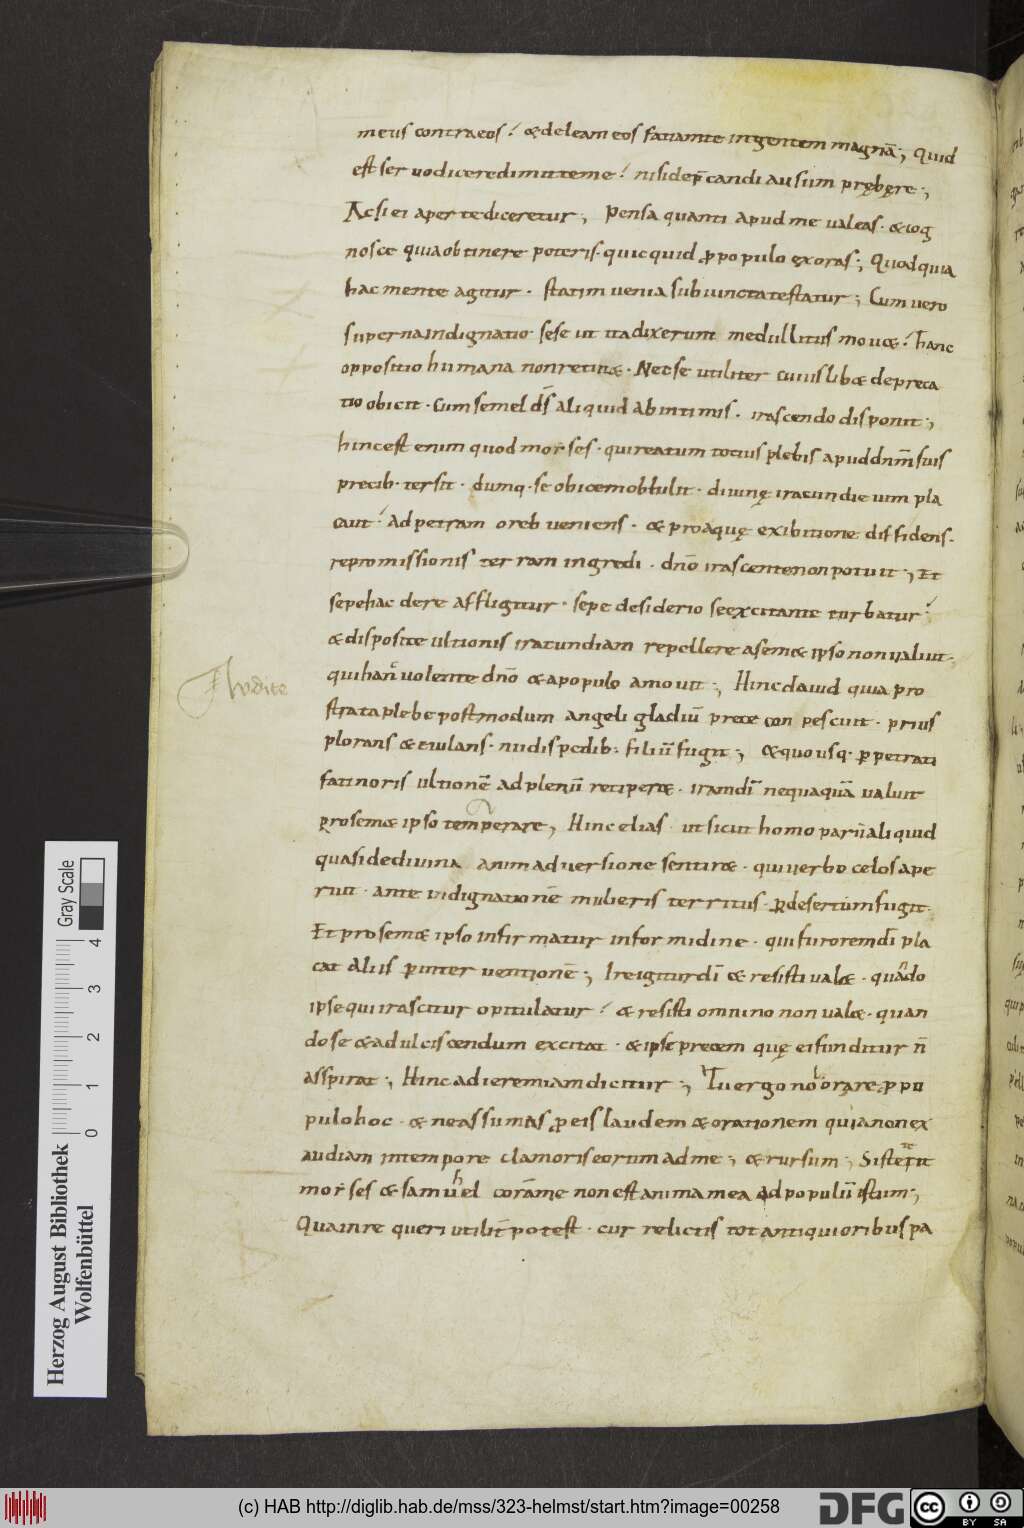 meus contra eos? & deleam eos faciamte ingentem magnā; Quid
est seruo dicere dimitte me? nisi dep̄candi ausum pręberę;
Ac si ei aperte diceretur; Pensa quanti apud me ualeas · & cog
nosce quia obtinere poteris · quicquid ꝓ populo ęxoras; Quod quia
hac mente agitur · statim uenia subiuncta testatur; Cum uero
superna indignatio sese ut ita dixerunt medullitus mou&? hanc
oppositio humana non retin& · Nec se utiliter cuiuslib& depreca
tio obicit · Cum semel d̄s aliquid ab intimis · irascendo disponit;
hinc est enim quod moyses · qui reatum totius plebis apud dn̄m suis
precib· tersit · dumq· se obicem obtulit · diuinę iracundie uim pla
cauit? ad petram oreb ueniens · & pro aquę exibitione diffidens ·
repromissionis terram ingredi · dn̄o irascente non potuit; Et
sepe hac de re affligitur · sepe desiderio se excitante turbatur?
& disposite ultionis iracundiam repellere a sem& ipso non ualuit ·
qui hanc uolente dn̄o & a populo amouit; Hinc dauid quia pro
strata plebe postmodum angeli gladiū prece conpescuit · prius
plorans & eiulans · nudis pedib: filiū fugit; & quo usq· ꝑpetrati
facinoris ultionē ad plenū reciper& · iram dī nequaquā ualuit
pro sem& ipso temperare; Hinc elias ut sicut homo parū aliquid
quasi de diuina animaduersione sentir& · qui uerbo celos ape
ruit · ante indignationē mulieris territus · ꝑ desertum fugit ·
Et pro sem& ipso infirmatur in formidine · qui furorem dī pla
cat aliis ꝑ interuentionē; Ire igitur dī & resisti ual& · quando
ipse qui irascitur opitulatur? & resisti omnino non ual& · quan
do se & ad ulciscendum excitat · & ipse precem quę ei funditur n̄
asspirat; Hinc ad ieremiam dicitur; Tu ergo noli orare ꝓ po
pulo hoc · & ne assumas ꝓ eis laudem & orationem quia non ex
audiam in tempore clamoris eorum ad me; & rursum; Si steterit
moyses & samuhel corā me non est anima mea ad populū istum;
Qua in re queri utilit̄ potest · cur relictis tot antiquioribus pa
Herzog August Bibliothek
Wolfenbüttel
0 1 2 3 4
Gray Scale
(c) HAB http://diglib.hab.de/mss/323-helmst/start.htm?image=00258
DFG
cc BY SA